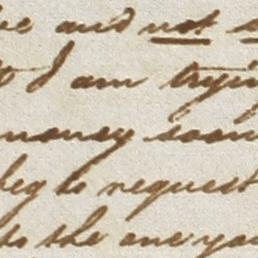 and not
I am tryin
money soon
beg to request
to the one you